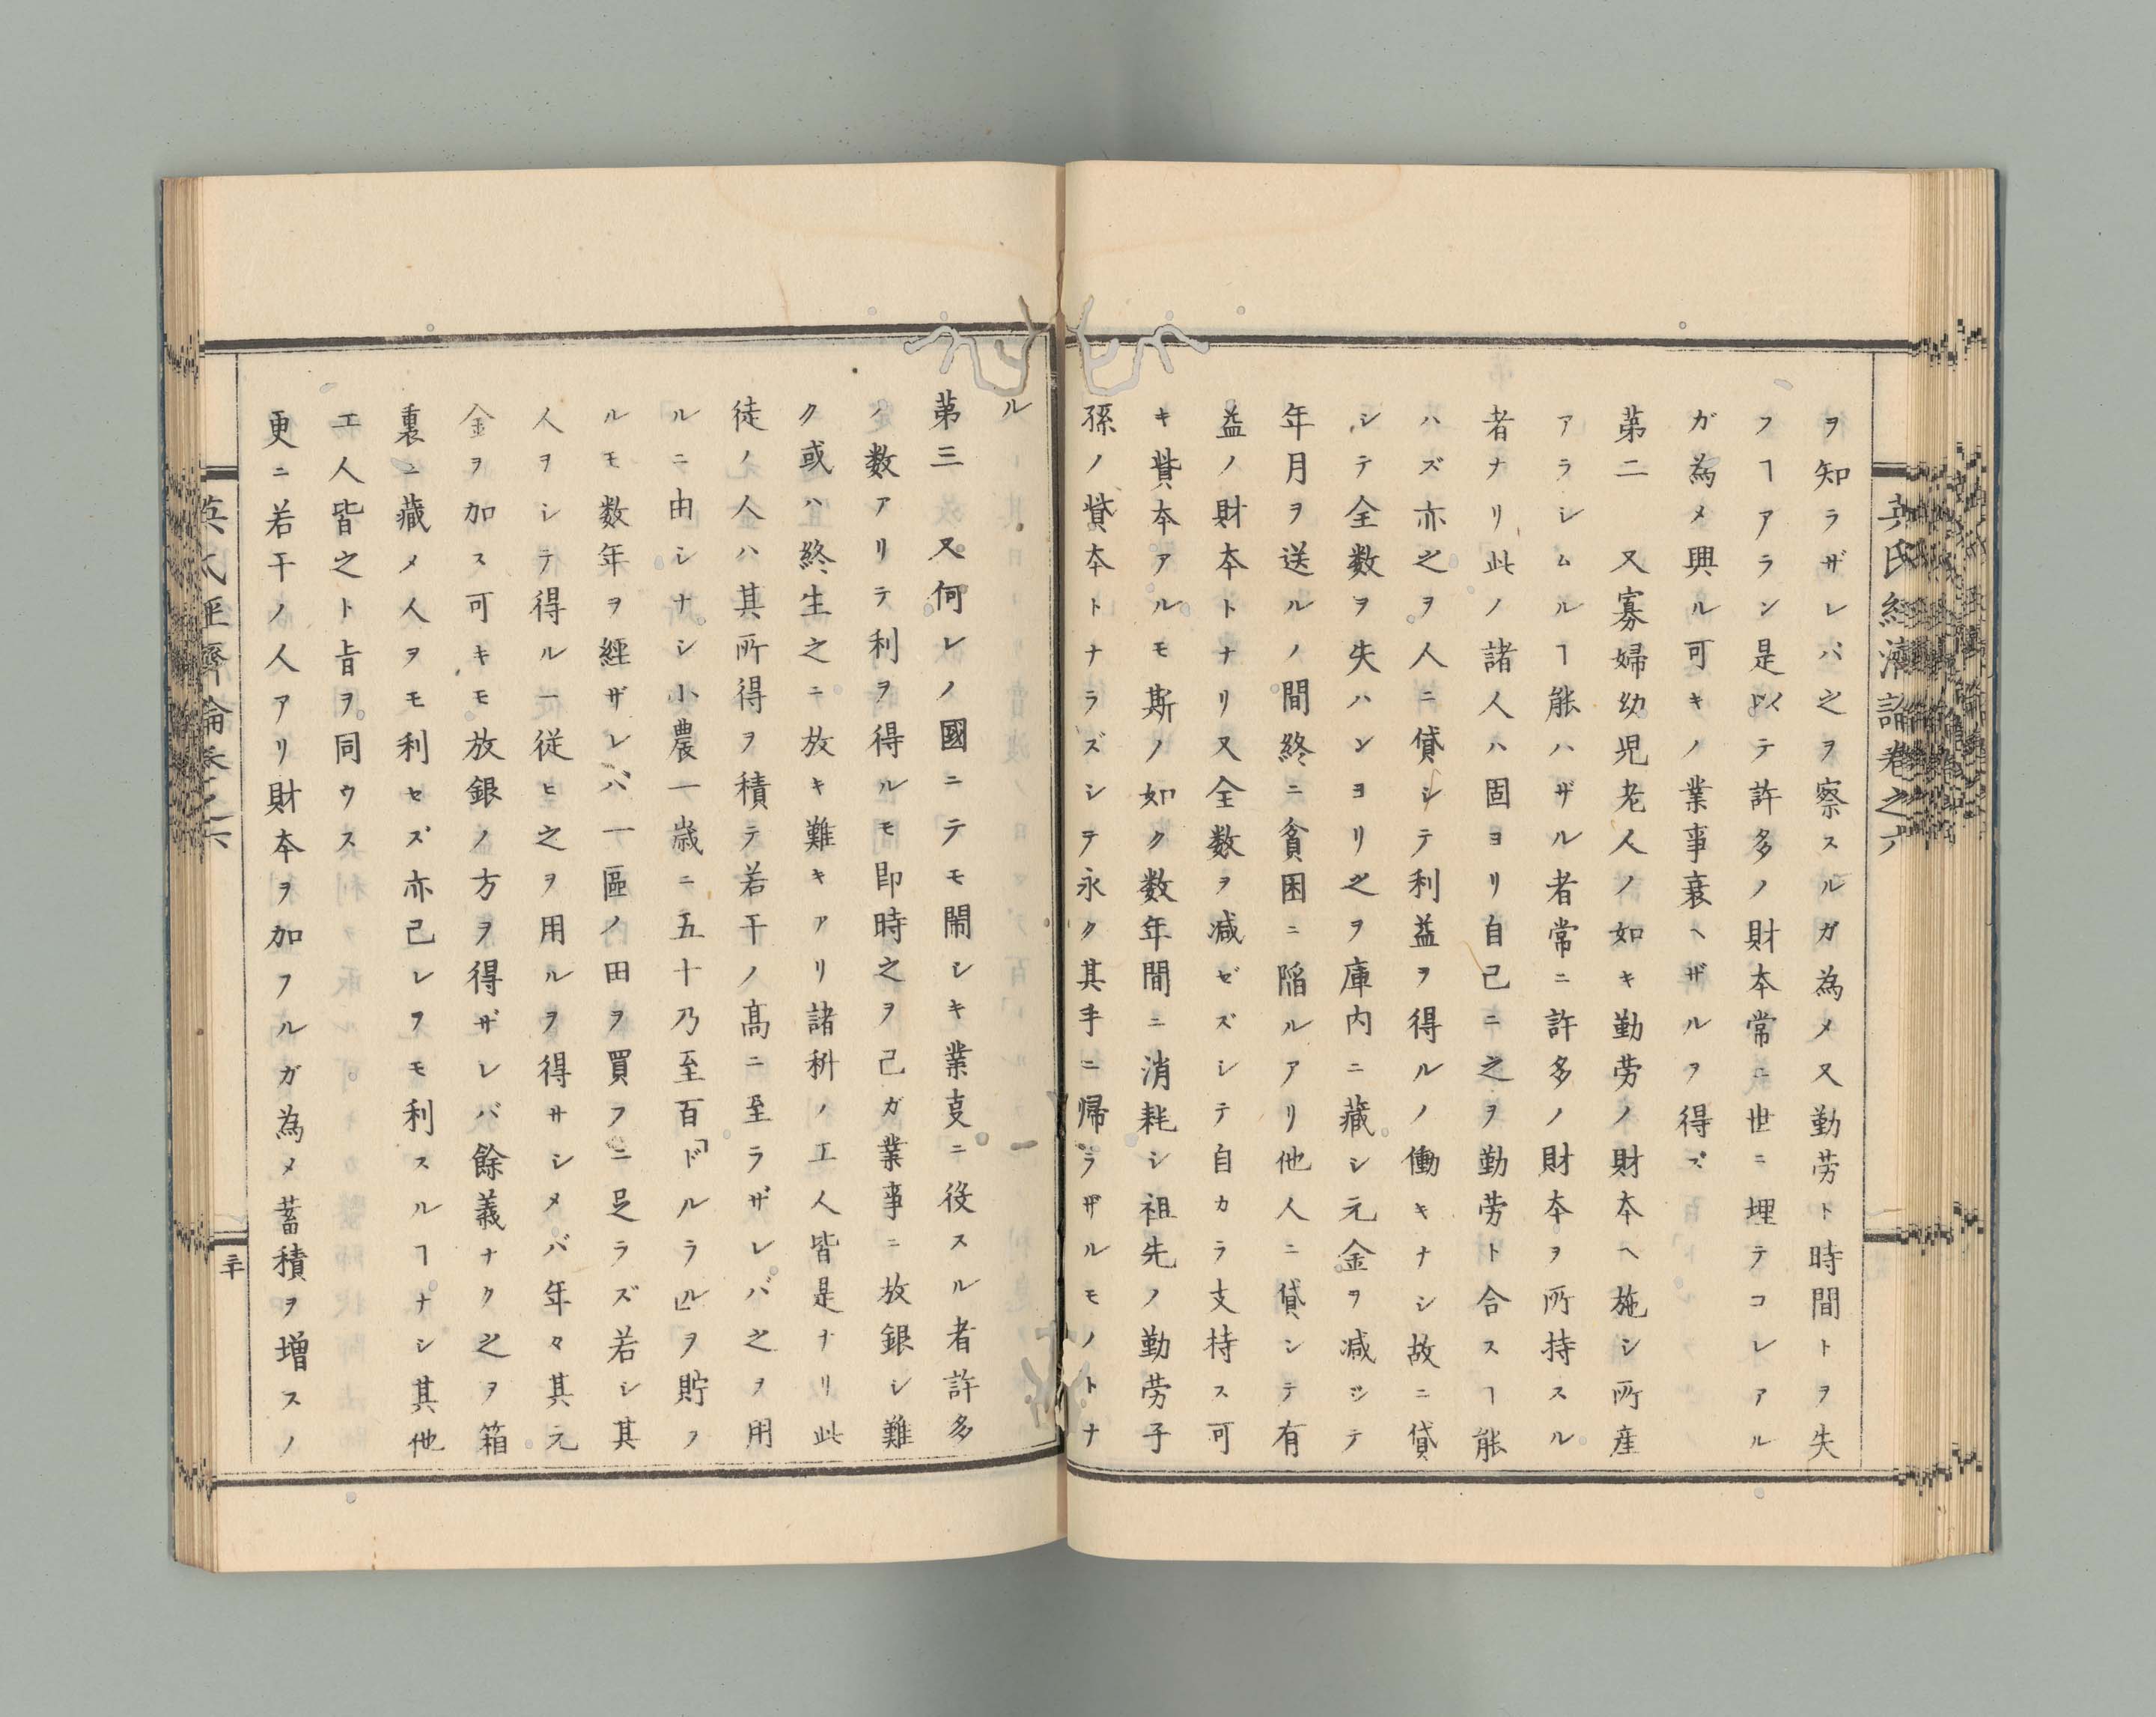 英氏經濟論卷之六
ヲ知ラザレバ之ヲ察スルガ為メ又勤劳ト時間トヲ失
フヿアラン是ヲ以テ許多ノ財本常ニ世ニ埋テコレアル
ガ為メ興ル可キノ業事衰ヘザルヲ得ズ
第二　又寡婦幼児老人ノ如キ勤劳ノ財本ヘ施シ所産
アラシムルヿ能ハザル者常ニ許多ノ財本ヲ所持スル
者ナリ此ノ諸人ハ固ヨリ自己ニ之ヲ勤劳ト合スヿ能
ハズ亦之ヲ人ニ貸シテ利益ヲ得ルノ働キナシ故ニ貸
シテ全数ヲ失ハンヨリ之ヲ庫内ニ藏シ元金ヲ减ジテ
年月ヲ送ルノ間終ニ貧困ニ陷ルアリ他人ニ貸シテ有
益ノ財本トナリ又全数ヲ减ゼズシテ自カラ支持ス可
キ貲本アルモ斯ノ如ク数年間ニ消耗シ祖先ノ勤劳子
孫ノ貲本トナラズシテ永ク其手ニ帰ラザルモノトナ
ル
第三　又何レノ國ニテモ閙シキ業叓ニ役スル者許多
ノ数アリテ利ヲ得ルモ即時之ヲ己ガ業事ニ放銀シ難
ク或ハ終生之ニ放キ難キアリ諸科ノ工人皆是ナリ此
徒ノ人ハ其所得ヲ積テ若干ノ髙ニ至ラザレバ之ヲ用
ルニ由シナシ小農一歳ニ五十乃至百「ドルラル」ヲ貯フ
ルモ数年ヲ經ザレバ一區ノ田ヲ買フニ足ラズ若シ其
人ヲシテ得ル一従ヒ之ヲ用ルヲ得サシメバ年々其元
金ヲ加ス可キモ放銀ノ方ヲ得ザレバ餘義ナク之ヲ箱
裏ニ藏メ人ヲモ利セズ亦己レヲモ利スルヿナシ其他
工人皆之ト旨ヲ同ウス
更ニ若干ノ人アリ財本ヲ加フルガ為メ蓄積ヲ增スノ
英氏經齊論卷之六
三十